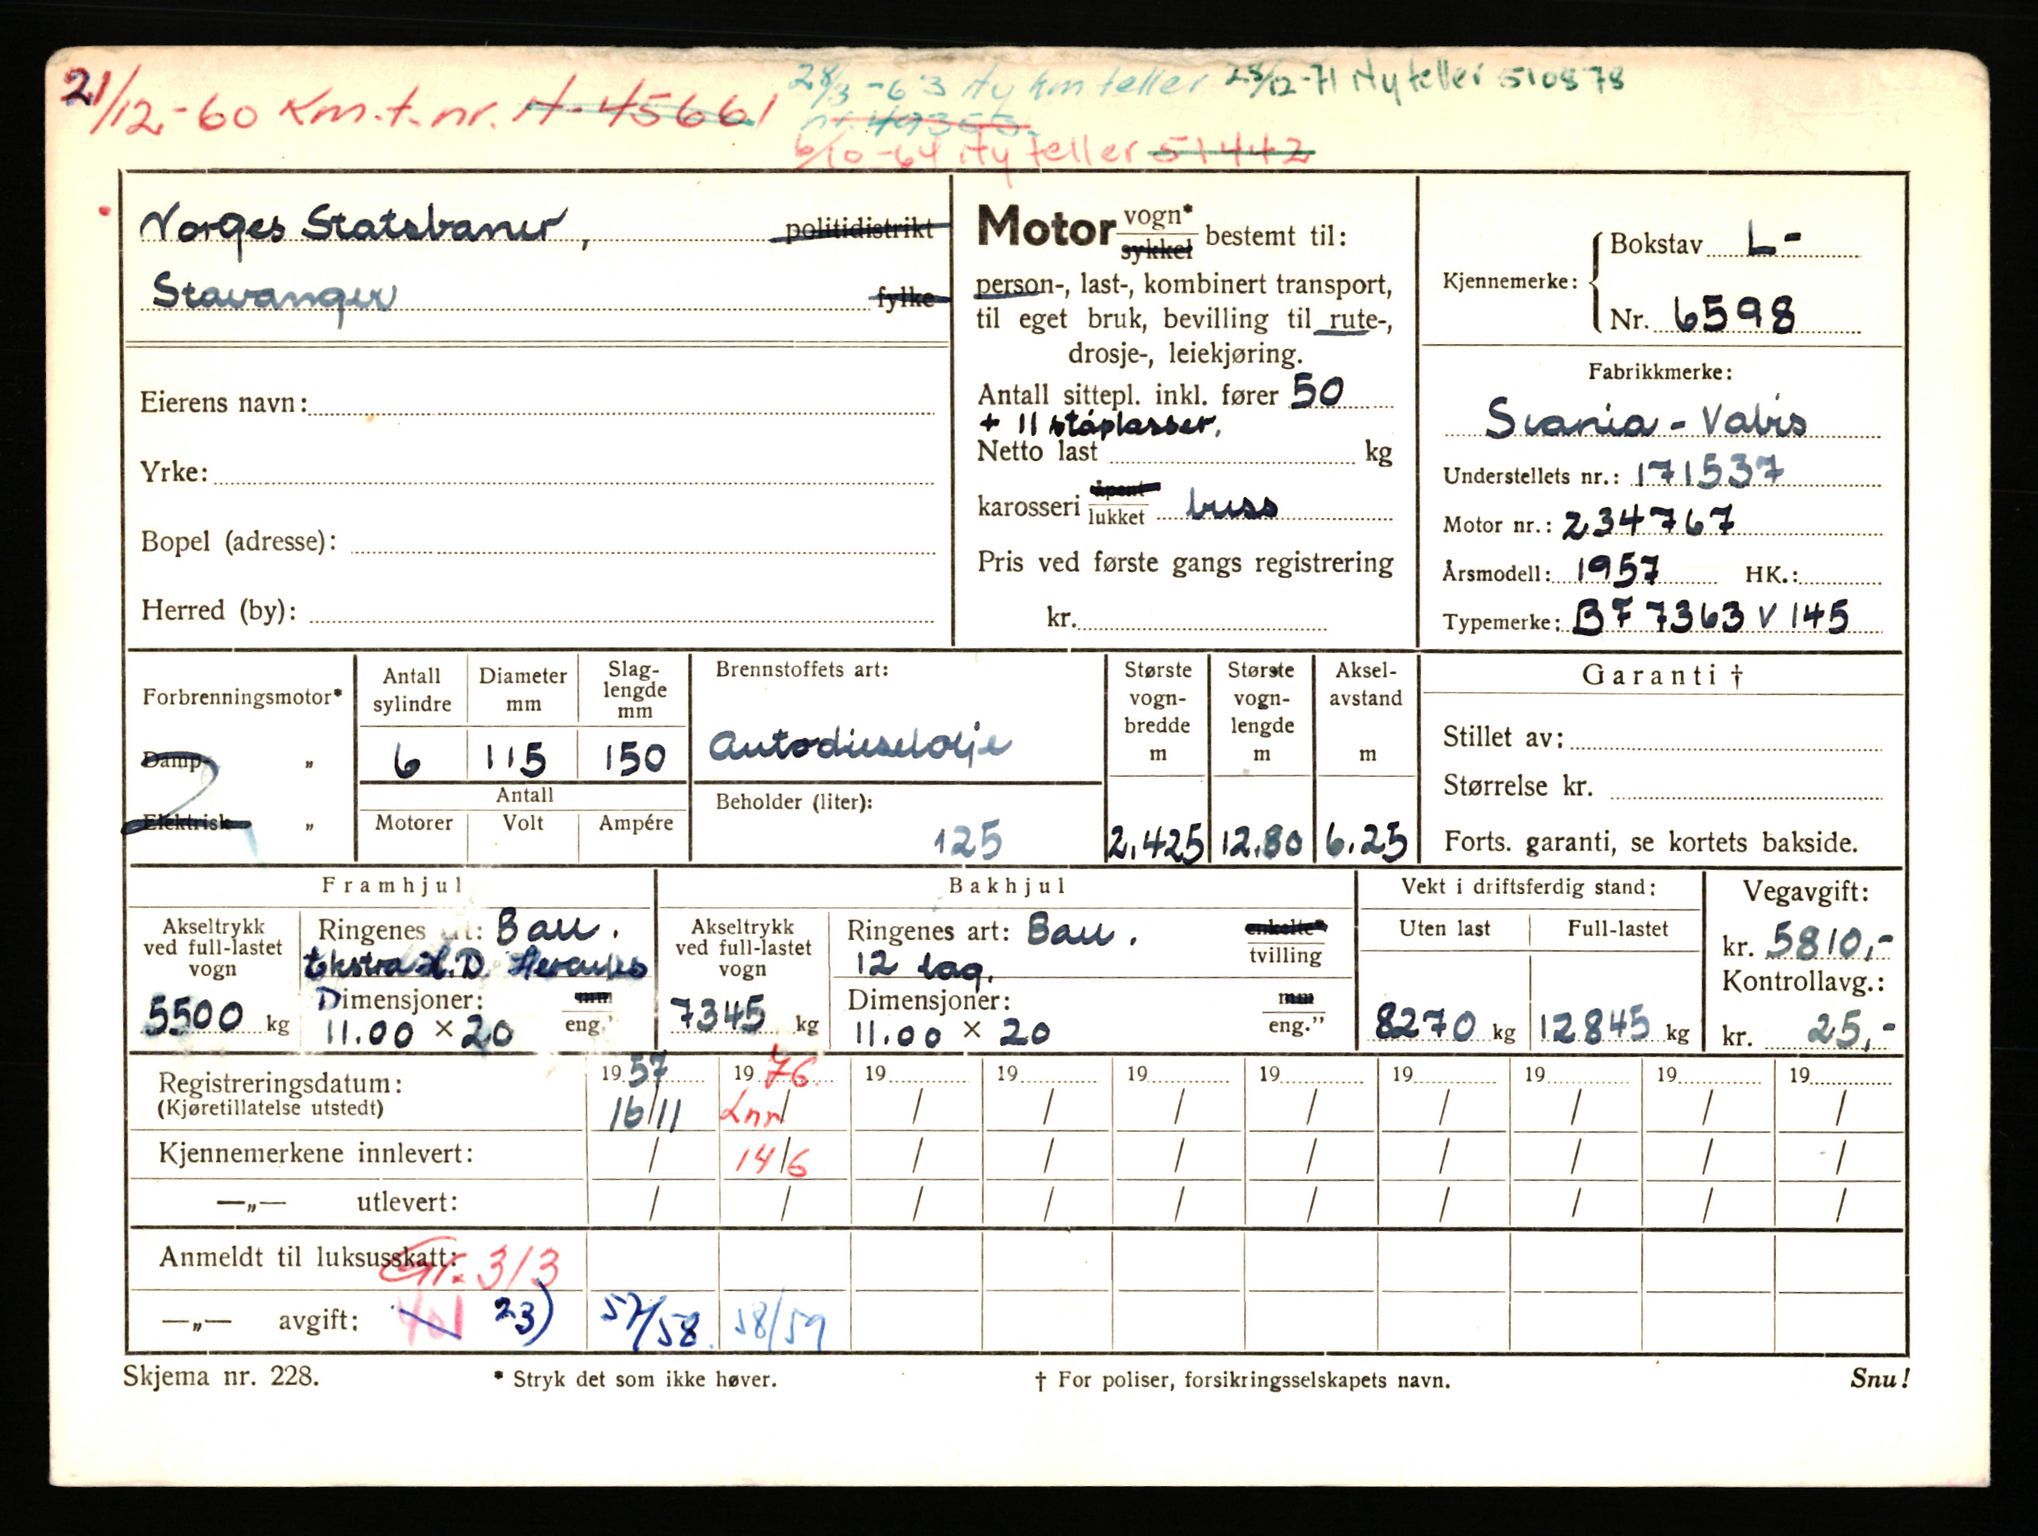 21/12-60 Km.t.nr. H-45661
28/3-63 Ny km teller
nr. 49353.
28/12-71 Ny teller 510878
6/10-64 Ny teller 51442
Norges Statsbaner, politidistrikt
Stavanger fylke
Eierens navn:
Yrke:
Bopel (adresse):
Herred (by):
Motor vogn* sykkel bestemt til:
person-, last-, kombinert transport,
til eget bruk, bevilling til rute-,
drosje-, leiekjøring.
Antall sittepl. inkl. fører 50
+ 11 ståplasser.
Netto last kg
karosseri åpent lukket buss
Pris ved første gangs registrering
kr.
Kjennemerke: Bokstav L-
Nr. 6598
Fabrikkmerke:
Scania-Vabis
Understellets nr.: 171537
Motor nr.: 234767
Årsmodell: 1957 HK.:
Typemerke: BF 7363 V 145
Forbrenningsmotor*
Damp- „
Elektrisk „
Antall sylindre 6
Diameter mm 115
Slag-lengde mm 150
Antall
Motorer Volt Ampére
Brennstoffets art:
Autodieselolje
Beholder (liter):
125
Største vogn-bredde m 2.425
Største vogn-lengde m 12.80
Aksel-avstand m 6.25
Garanti †
Stillet av:
Størrelse kr.
Forts. garanti, se kortets bakside.
Framhjul
Akseltrykk ved full-lastet vogn
5500 kg
Ringenes art: Ball.
Ekstra H.D. Hercules
Dimensjoner: mm
11.00 × 20 eng."
Bakhjul
Akseltrykk ved full-lastet vogn
7345 kg
Ringenes art: Ball. enkelte* tvilling
12 lag.
Dimensjoner: mm
11.00 × 20 eng."
Vekt i driftsferdig stand:
Uten last Full-lastet
8270 kg 12845 kg
Vegavgift:
kr. 5810,-
Kontrollavg.:
kr. 25,-
Registreringsdatum: 1957 1976 19 19 19 19 19 19 19 19
(Kjøretillatelse utstedt) 16/11 Lnr/ / / / / / / / /
Kjennemerkene innlevert: / 14/6 / / / / / / / /
—„— utlevert: / / / / / / / / / /
Anmeldt til luksusskatt: Gr. 3/3
—„— avgift: 401 23) 57/58. 58/59
Skjema nr. 228.
* Stryk det som ikke høver.
† For poliser, forsikringsselskapets navn.
Snu!